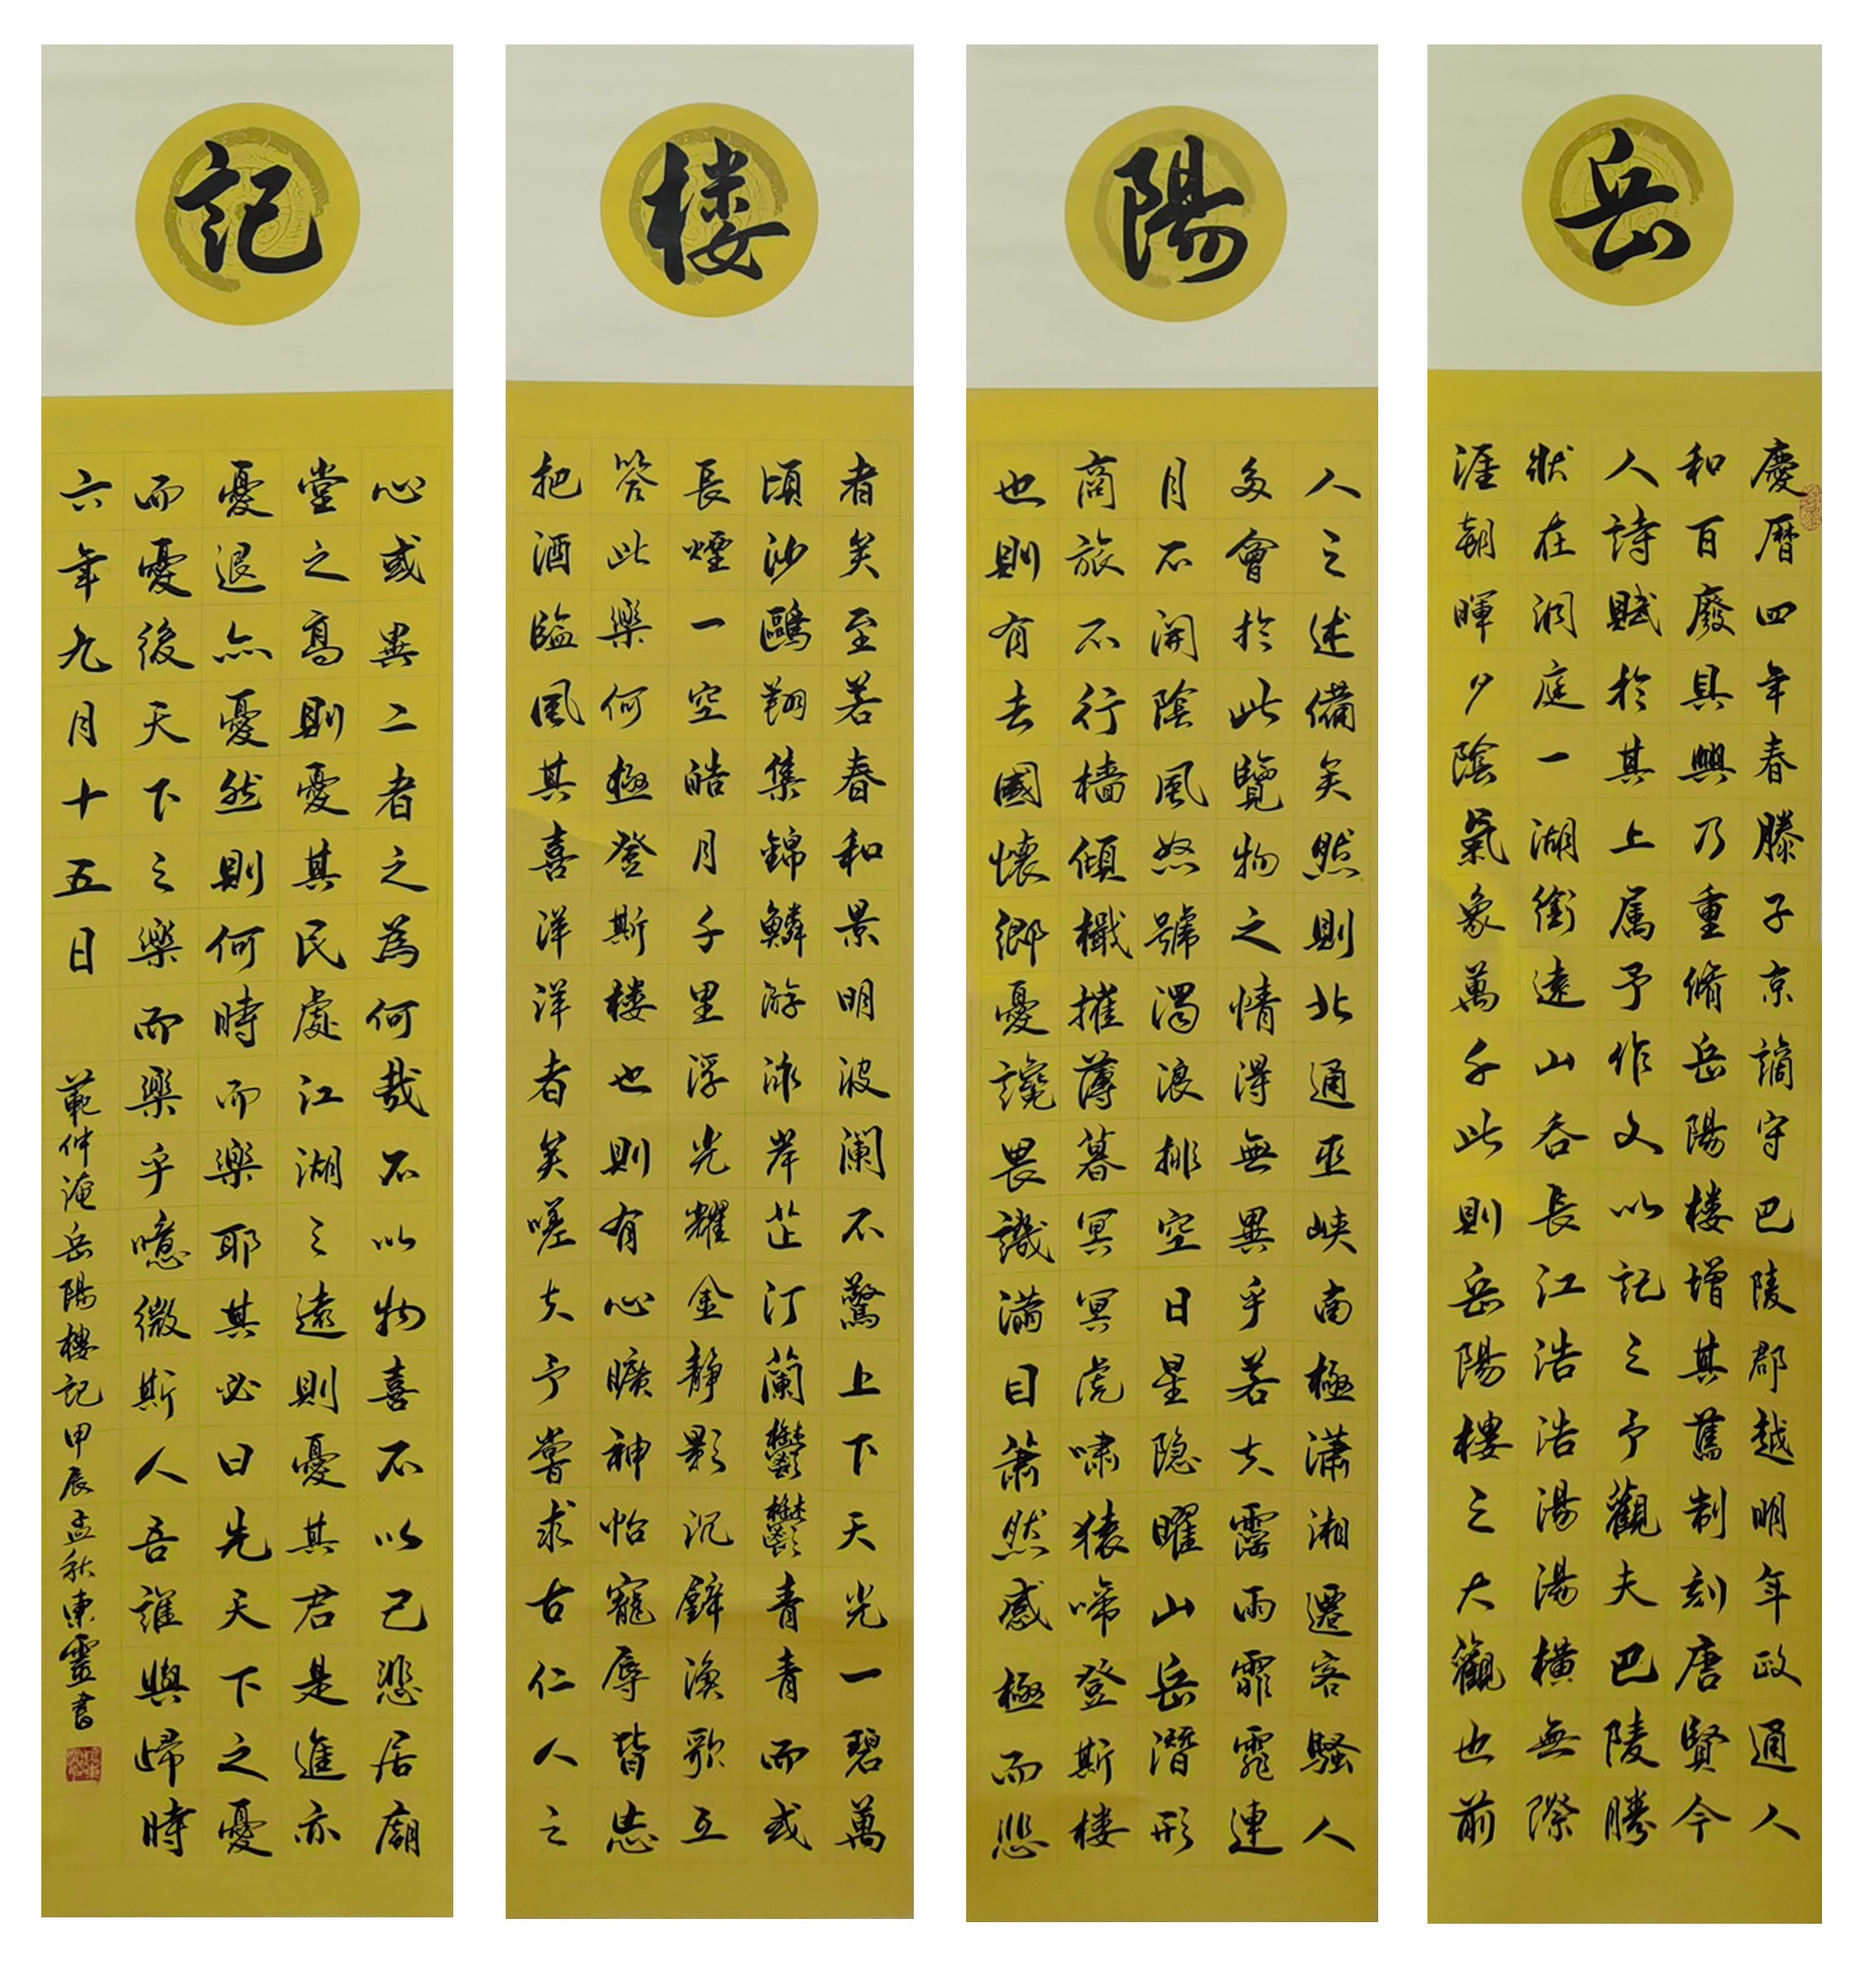 岳
慶暦四年春滕子京謫守巴陵郡越明年政通人
和百廢具興乃重脩岳陽楼增其舊制刻唐賢今
人詩賦於其上属予作文以記之予觀夫巴陵勝
狀在洞庭一湖銜遠山吞長江浩浩湯湯橫無際
涯朝暉夕陰氣象萬千此則岳陽樓之大觀也前
陽
人之述備矣然則北通巫峽南極瀟湘遷客騷人
多會於此覽物之情得無異乎若夫霪雨霏霏連
月不開陰風怒號濁浪排空日星隐曜山岳潛形
商旅不行檣傾檝摧薄暮冥冥虎嘯猿啼登斯楼
也則有去國懷鄉憂讒畏譏滿目蕭然感極而悲
楼
者矣至若春和景明波瀾不驚上下天光一碧萬
頃沙鷗翔集錦鱗游泳岸芷汀蘭鬱鬱青青而或
長煙一空皓月千里浮光耀金静影沉璧漁歌互
答此樂何極登斯楼也則有心曠神怡寵辱皆忘
把酒臨風其喜洋洋者矣嗟夫予嘗求古仁人之
記
心或異二者之為何哉不以物喜不以己悲居廟
堂之高則憂其民處江湖之遠則憂其君是進亦
憂退亦憂然則何時而樂耶其必曰先天下之憂
而憂後天下之樂而樂乎噫微斯人吾誰與歸時
六年九月十五日
範仲淹岳陽樓記甲辰孟秋東靈書